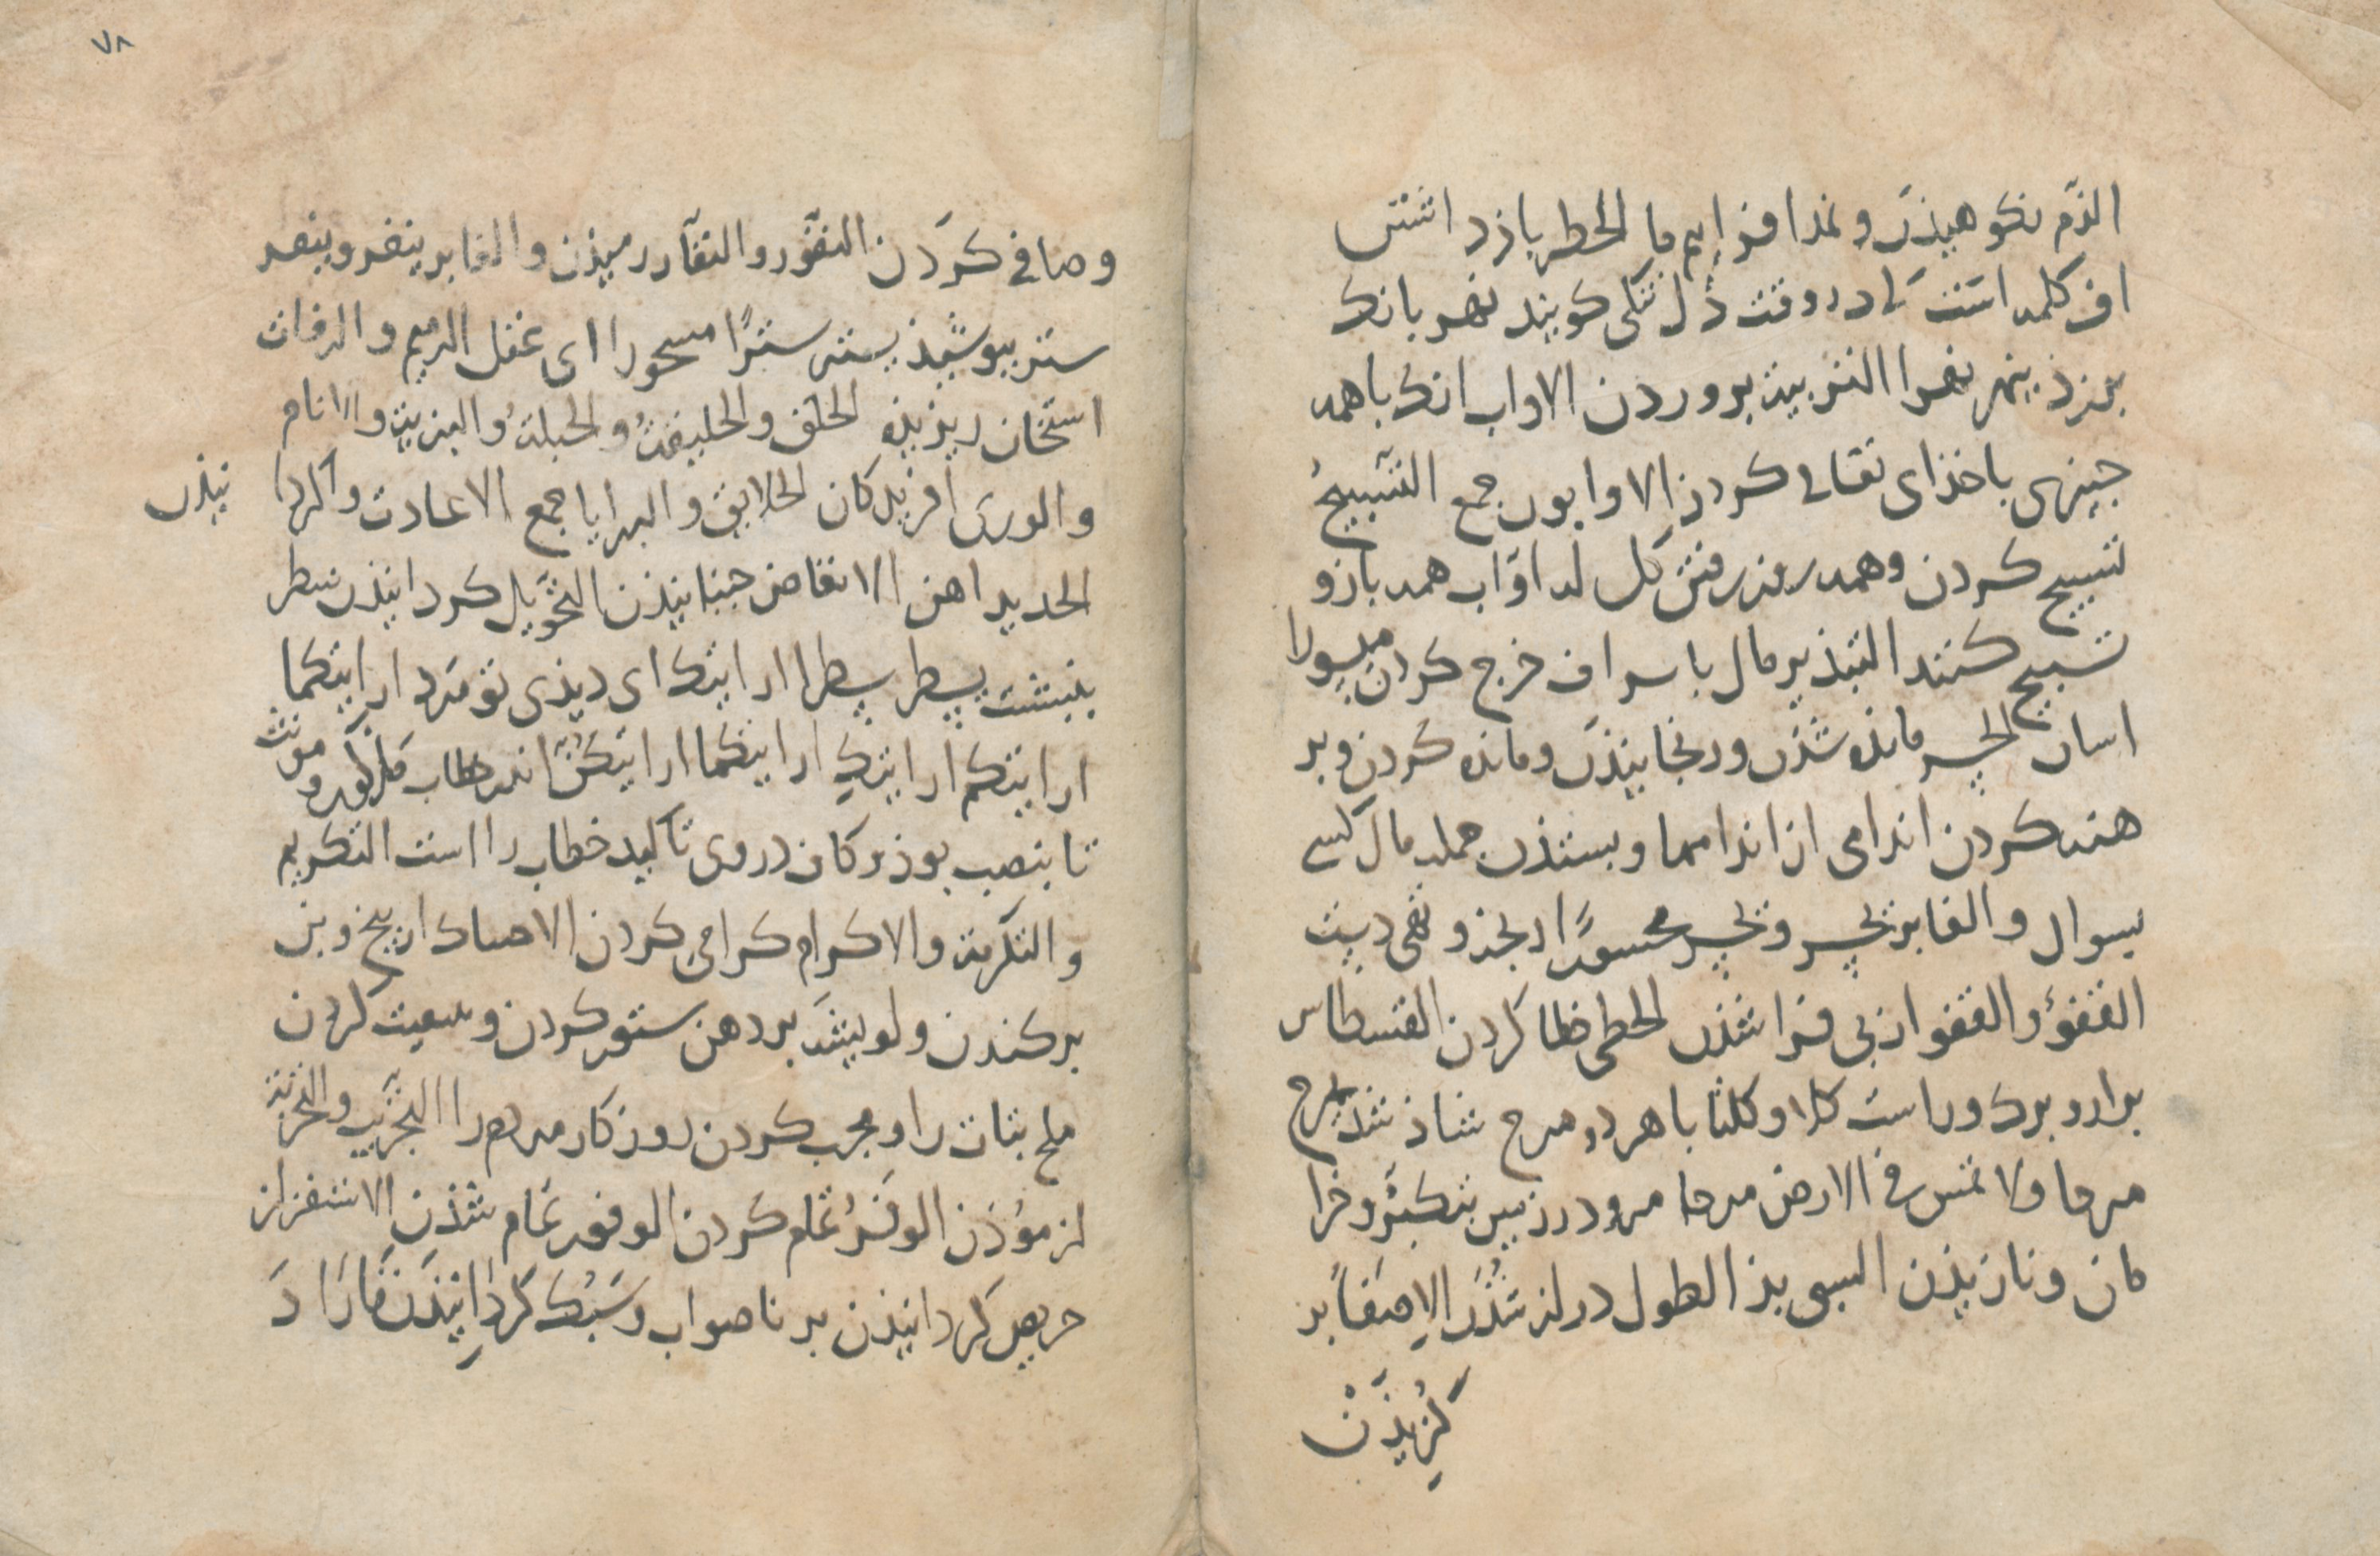 الذّم نکوهیذن و نمدا فزایم ما الخطر بازداشتن
اف کلمه است کی در وقت دل تنکی کویند نهر بانک
برزد ینهر نهرا التربیت بروردن الاواب انک باهمه
جیزی باخذای تعالی کردذ الاوابون جمع التسبیح
تسبیح کردن وهمه روز رفتن کل له اوّاب همه بازو
تسبیح کنند التبذیر مال باسراف خرج کردن میسورا
اسان الحسر مانده شذن ورنجانیذن ومانده کردن وبر
هنه کردن اندامی از اندامها وبستذن جمله مال کسی
بسوال والغابر یحسر ویحسر محسورًا
القفوُ والقفو از بی فرا شذن الخطی خطا کردن القسطاس
برابرد بزرک وراست کلا وکلتا باهر دو مرح شاذ شذ یمرح
مرحا ولا تمش فی الارض مرحا مرو در زمین بتکبّر وخرا
مان ونازیذن السی بذ الطول دراز شذن الاصفا بر
کزیذن
۷۸
وصافی کردن النفوّر والنفار رمیذن والغابر ینفر وینفر
ستر ببوشیذ یستر سترًا مسحورا ای عقل الرمیم والرفات
استخان ریزیذه الخلق والخلیقة والجبلة والبریة والانام
والوری افریذکان الخلایق والبرایا جمع الاعادت واکردا نیذن
الحدید اهن الانغاض جنبانیذن التحویل کردانیذن سطر
بنبشت یسطر سطرا ارایتک ای دیذی تو مرد ارایتکما
ارایتکم ارایتکِ ارایتکما ارایتکنّ اندر خطاب مذکور و مونث
تا بنصب بوذ و کاف در وی تاکید خطاب را است التکریم
والتکرمة والاکرام کرامی کردن الاحتناک از بیخ وبن
برکندن ولویشه بر دهن ستور کردن و کردن
ملخ نبات را ومجرب کردن روزکار مردم را التجریب والتجربة
ازموذن الوفرُ تمام کردن الوفور تمام شذن الاستفزاز
حریص کردانیذن بر ناصواب وسبک کردانیذن تارًا د